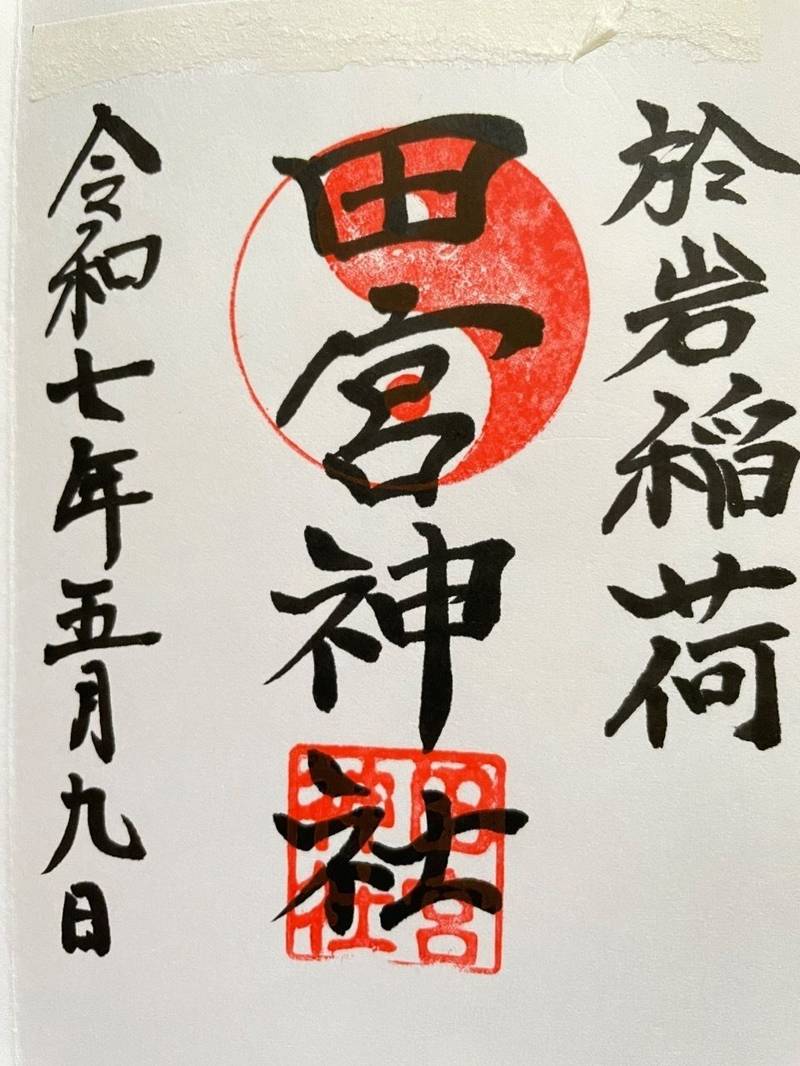 於岩稲荷
田宮神社
田宮神社
令和七年五月九日